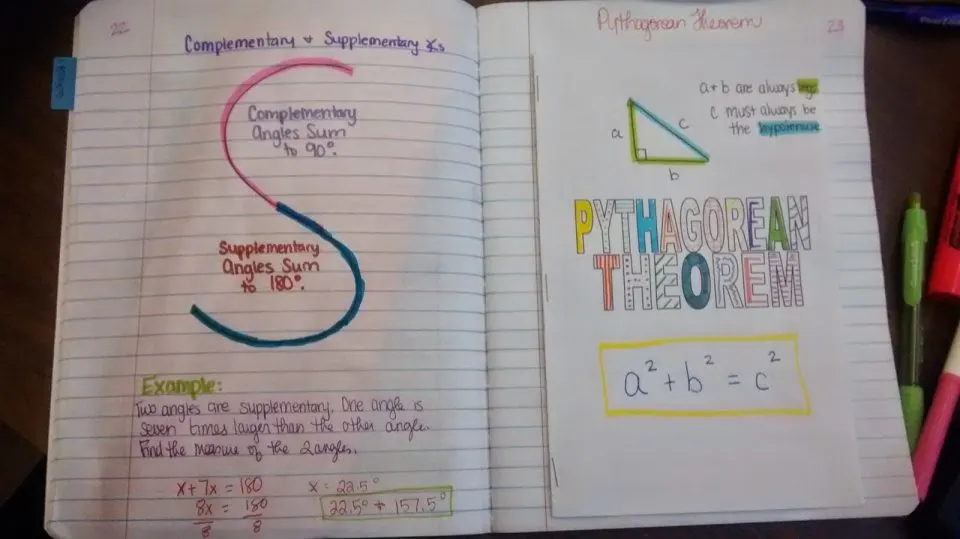 22
Complementary + Supplementary ∠s
Complementary
Angles Sum
to 90°.
Supplementary
Angles Sum
to 180°.
Example:
Two angles are supplementary. One angle is
seven times larger than the other angle.
Find the measure of the 2 angles.
x+7x = 180
8x = 180
8 8
x = 22.5°
22.5° + 157.5°
Pythagorean Theorem
23
a+b are always legs
c must always be
the hypotenuse
a
c
b
PYTHAGOREAN
THEOREM
a² + b² = c²